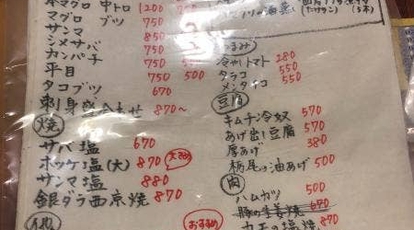 本マグロ 中トロ 1200 750
マグロ ブツ 750
サンマ 850
シメサバ 750 500
カンパチ 750
平目 750 500
タコブツ 670
刺身盛合わせ 870〜
焼
サバ塩 670
ホッケ塩(大) 870
サンマ塩 880
銀ダラ西京焼 870
おすすめ
つまみ
冷やしトマト 280
タラコ 550
メンタイコ 550
豆腐
キムチ冷奴 570
あげ出し豆腐 570
厚あげ 380
栃尾の油あげ 550
肉
ハムカツ 500
豚の生姜焼 670
カモの塩焼 870